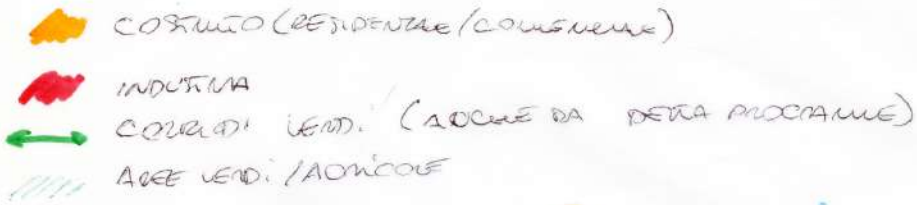 COSTRUITO (RESIDENZIALE/COMMERCIALE)
INDUSTRIA
CORRIDOI VERDI (ANCHE DA PROGRAMME)
AREE VERDI/AGRICOLE